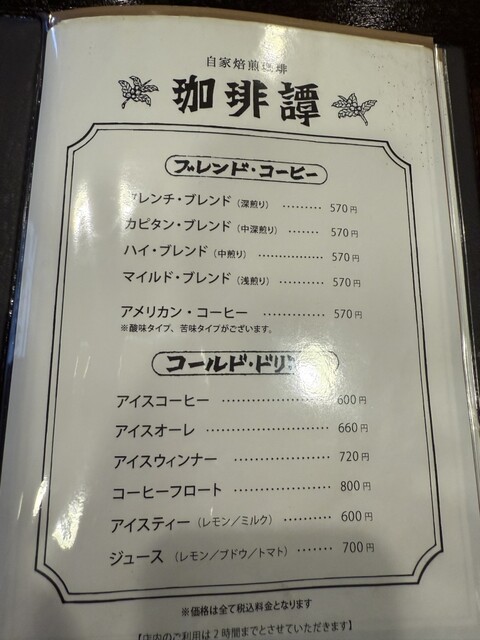 自家焙煎珈琲
珈琲譚
ブレンド・コーヒー
フレンチ・ブレンド（深煎り） ……… 570円
カピタン・ブレンド（中深煎り） ……. 570円
ハイ・ブレンド（中煎り） …………… 570円
マイルド・ブレンド（浅煎り） ………. 570円
アメリカン・コーヒー ………… 570円
※酸味タイプ、苦味タイプがございます。
コールド・ドリンク
アイスコーヒー ……………… 600円
アイスオーレ ……………… 660円
アイスウィンナー ………… 720円
コーヒーフロート ………… 800円
アイスティー（レモン／ミルク） ……… 600円
ジュース（レモン／ブドウ／トマト） ……. 700円
※価格は全て税込料金となります
【店内のご利用は2時間までとさせていただきます】